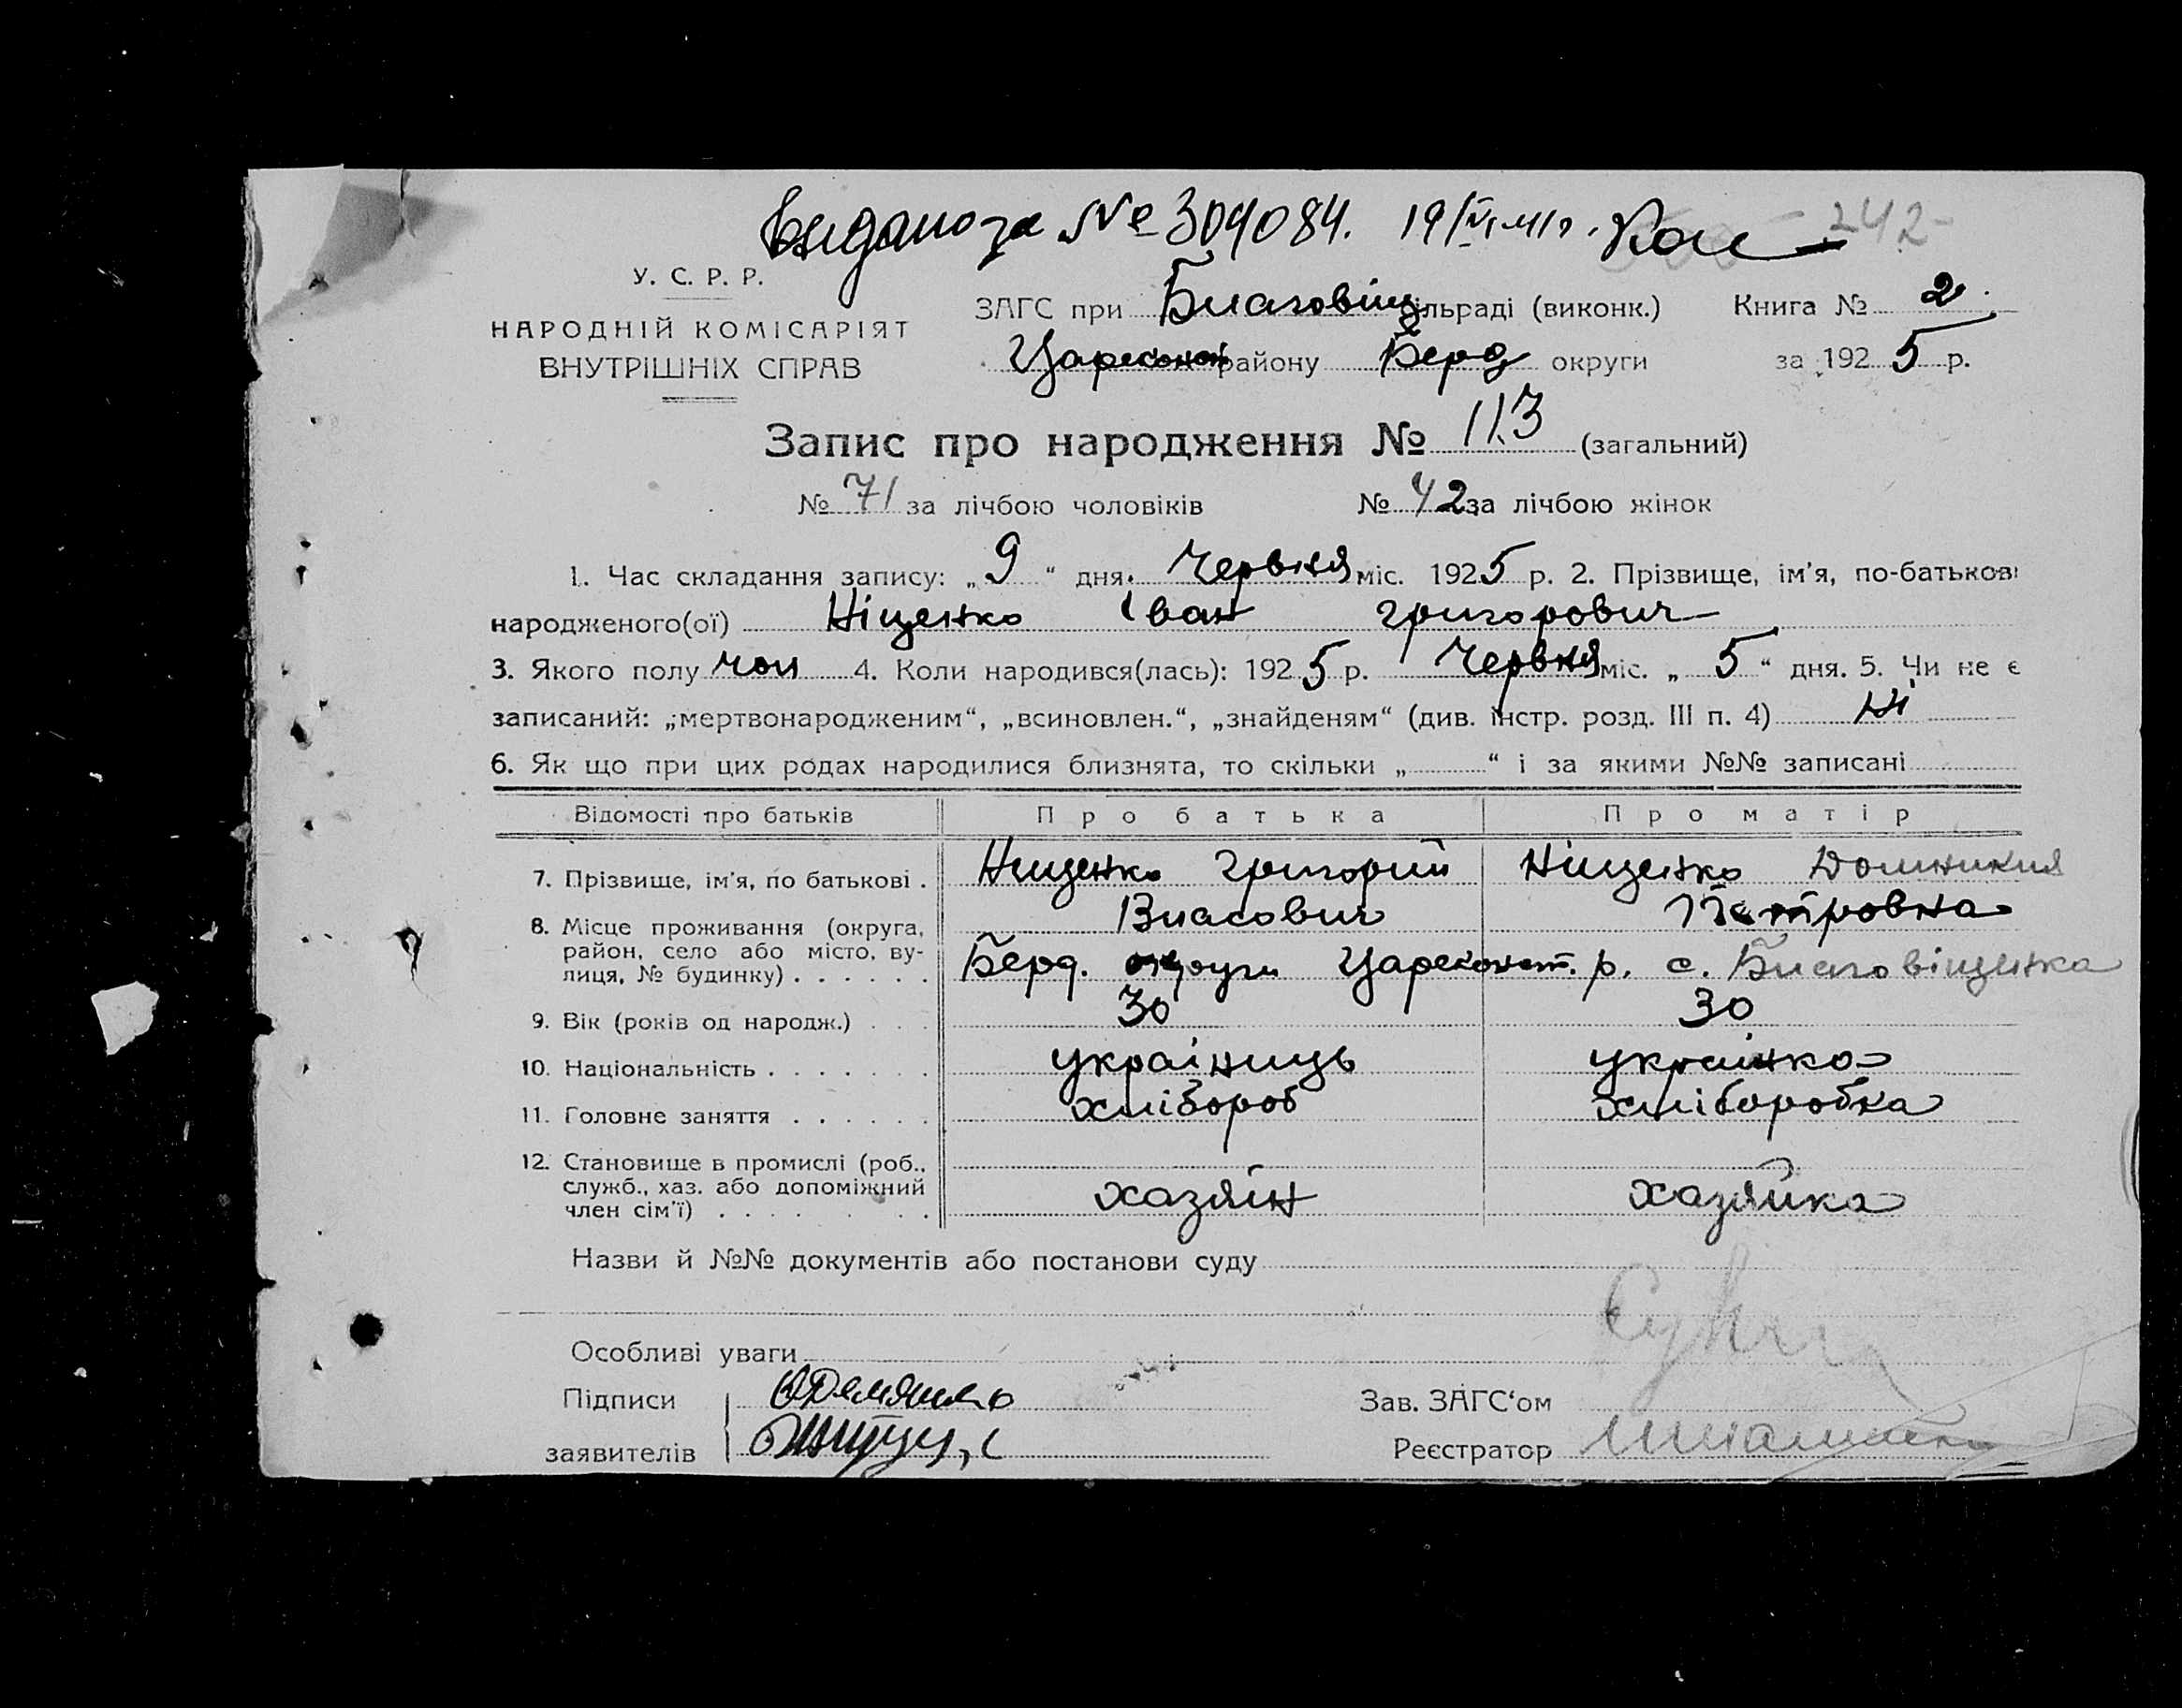 Видано за № 304084. 19/VI-41р.
242-
У. С. Р. Р.
НАРОДНІЙ КОМІСАРІЯТ
ВНУТРІШНІХ СПРАВ
ЗАГС при Благовіщ сільраді (виконк.) Книга № 2
Царекон району Берд округи за 1925 р.
Запис про народження № 113 (загальний)
№ 71 за лічбою чоловіків № 42 за лічбою жінок
1. Час складання запису: „9“ дня Червня міс. 1925 р. 2. Прізвище, ім'я, по-батькові
народженого(ої) Ніценко Іван Григорович
3. Якого полу чол 4. Коли народився(лась): 1925 р. Червня міс. „5“ дня. 5. Чи не є
записаний: „мертвонародженим“, „всиновлен.“, „знайденям“ (див. інстр. розд. III п. 4) Ні
6. Як що при цих родах народилися близнята, то скільки „ “ і за якими №№ записані
Відомості про батьків Про батька Про матір
7. Прізвище, ім'я, по батькові . Ниценко Григорий Ніценко Домникия
Власович Петровна
8. Місце проживання (округа,
район, село або місто, ву-
лиця, № будинку) . . . . . . Берд. округи Цареконст. р. с. Благовіщенка
9. Вік (років од народж.) . . . 30 30
10. Національність . . . . . . . україниць українка
11. Головне заняття . . . . . . хлібороб хліборобка
12. Становище в промислі (роб.,
служб., хаз. або допоміжний
член сім'ї) . . . . . . . хазяїн хазяйка
Назви й №№ документів або постанови суду
Особливі уваги
Підписи
заявителів
Зав. ЗАГС'ом
Реєстратор